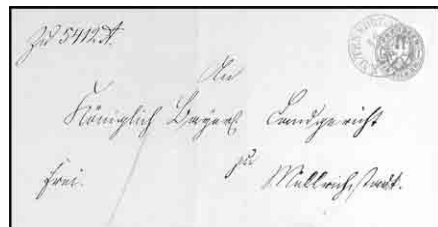 Zu 5412 A.
An
Königlich Bayer. Landgericht
zu
frei. Mellrichstadt.